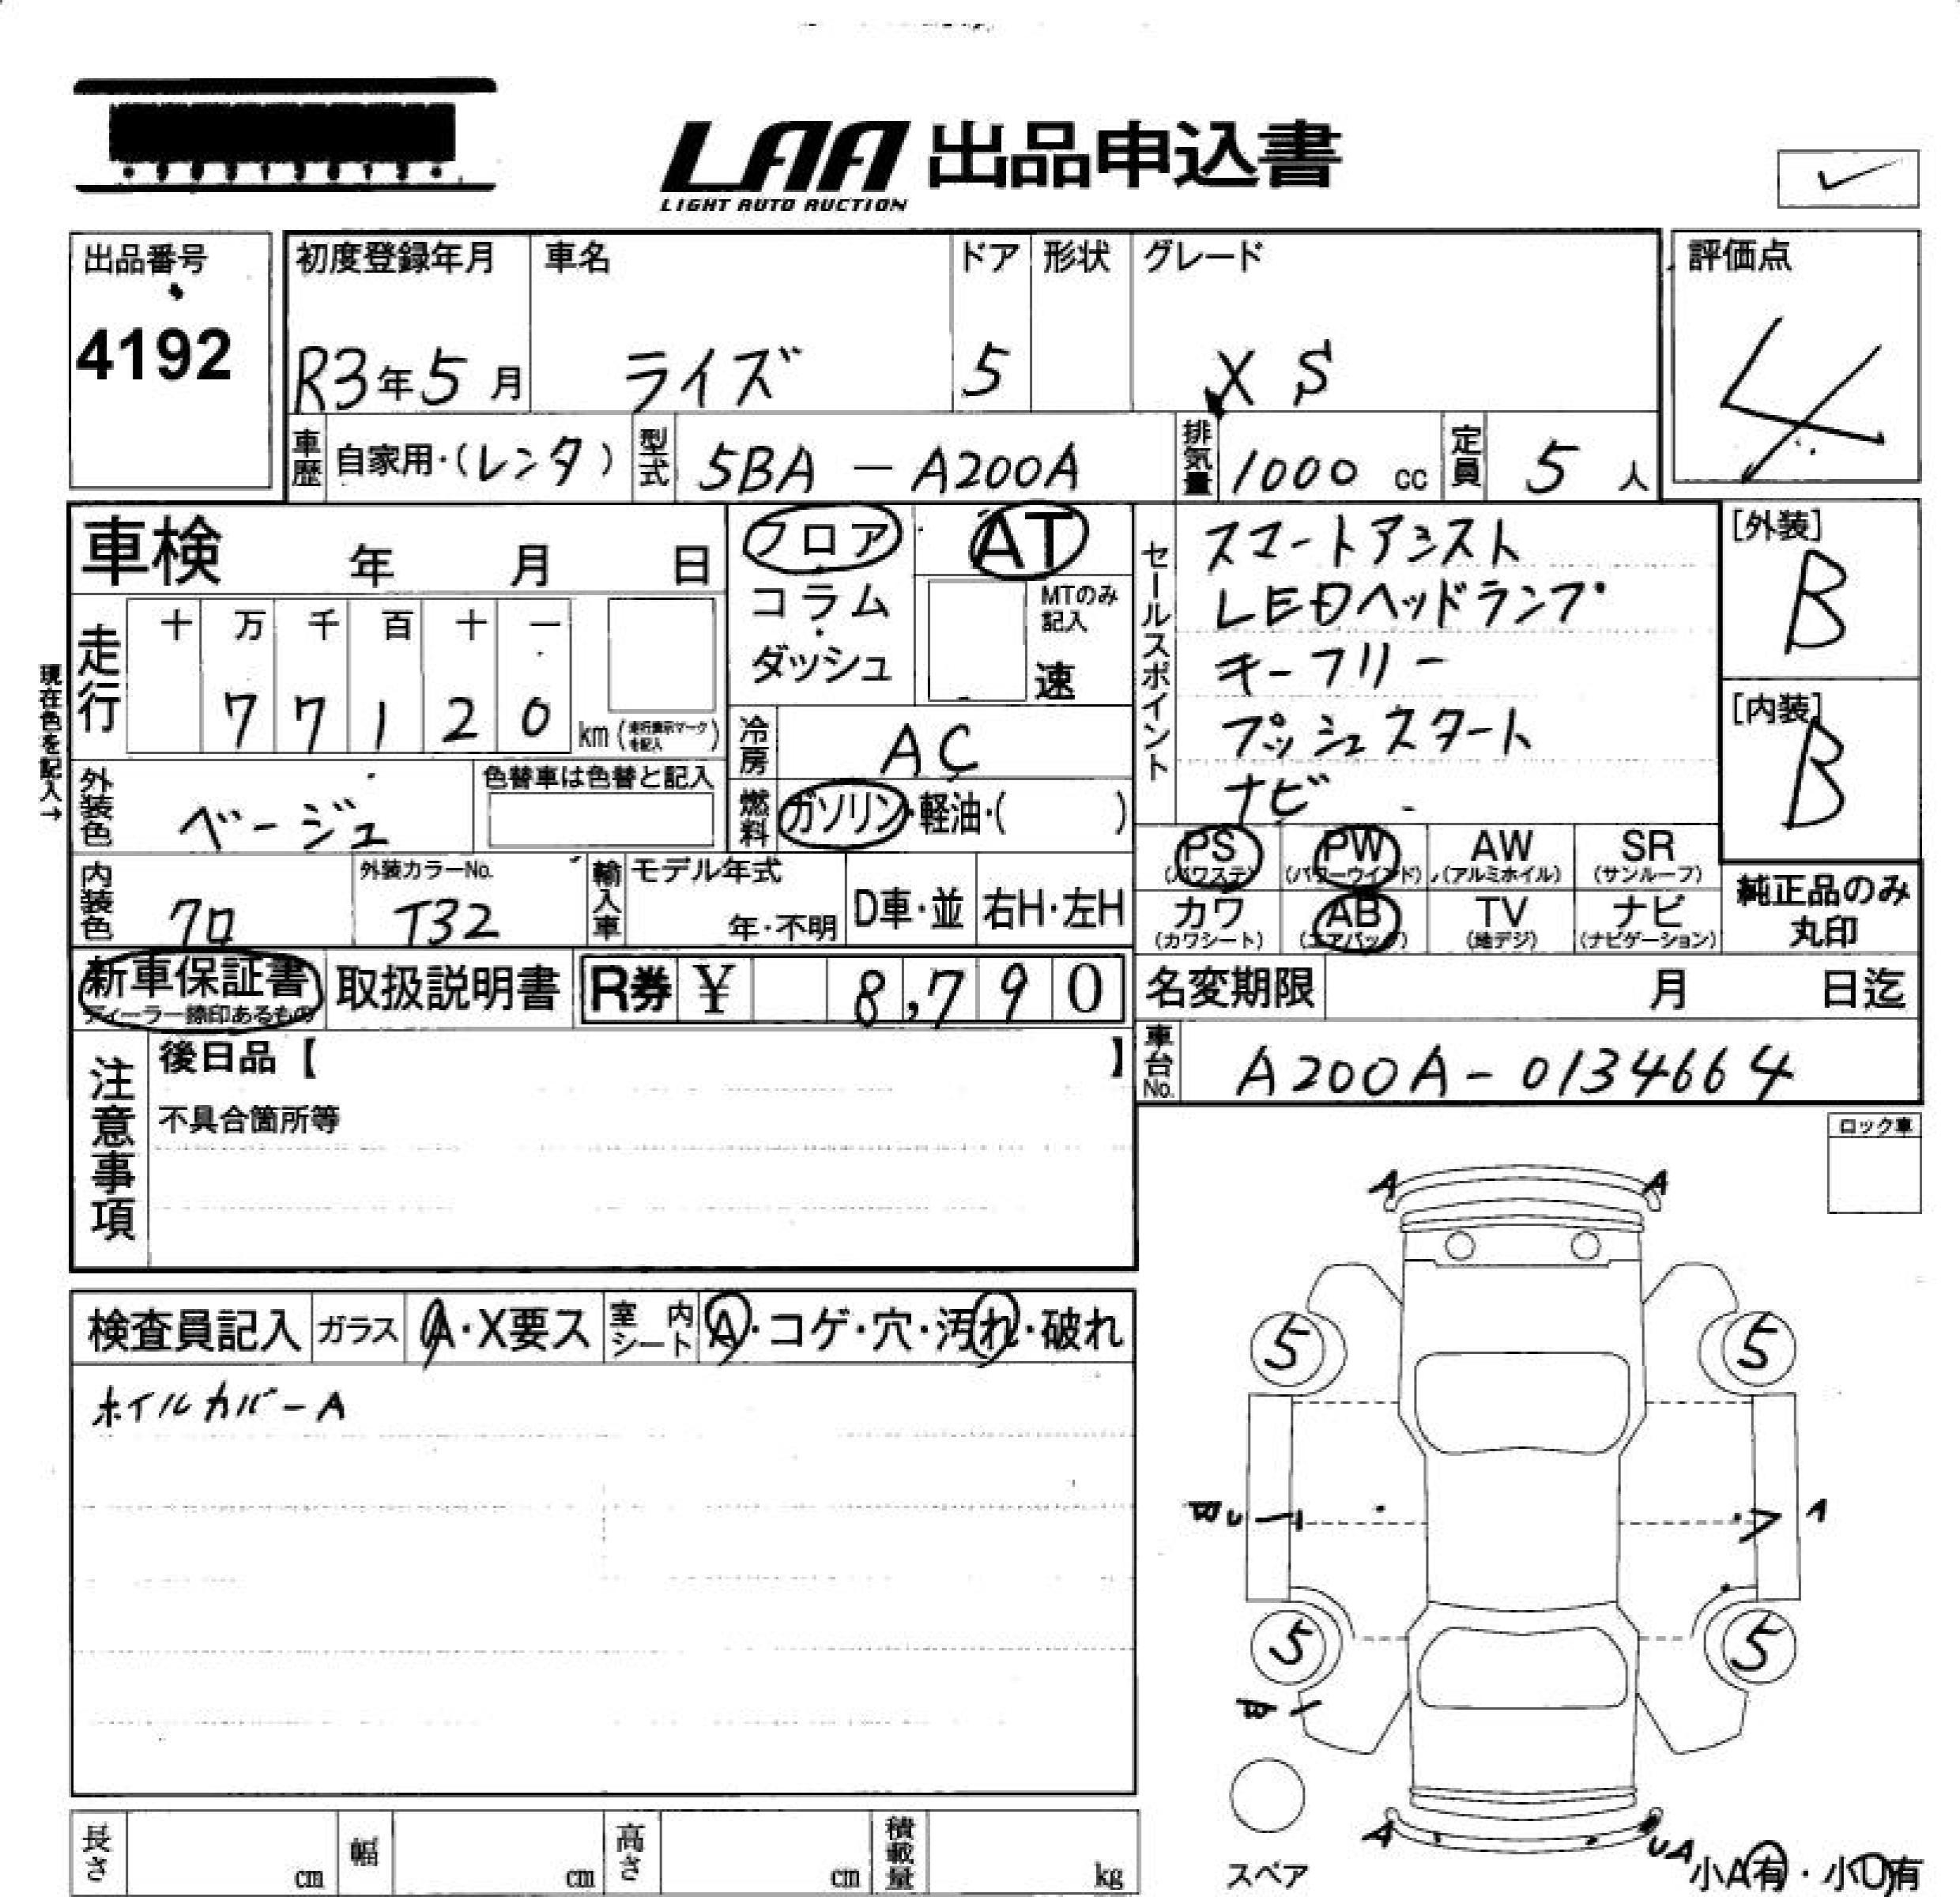 LAA 出品申込書
LIGHT AUTO AUCTION
出品番号 初度登録年月 車名 ドア 形状 グレード 評価点
4192 R3年5月 ライズ 5 XS 4
車歴 自家用・(レンタ) 型式 5BA-A200A 排気量 1000 cc 定員 5 人
車検 年 月 日
フロア・コラム・ダッシュ
AT
MTのみ記入 速
セールスポイント
スマートアシスト
LEDヘッドランプ
キーフリー
プッシュスタート
ナビ
[外装] B
[内装] B
現在色を記入→
走行 十 万 千 百 十 一
7 7 1 2 0 km (走行表示マークを記入)
冷房 AC
外装色 ベージュ 色替車は色替と記入
燃料 ガソリン・軽油・( )
PS (パワステ) PW (パワーウインド) AW (アルミホイル) SR (サンルーフ)
カワ (カワシート) AB (エアバッグ) TV (地デジ) ナビ (ナビゲーション)
純正品のみ丸印
内装色 クロ 外装カラーNo. T32 輸入車 モデル年式 年・不明 D車・並 右H・左H
新車保証書 ディーラー捺印あるもの 取扱説明書 R券 ¥ 8,790
名変期限 月 日迄
車台No. A200A-0134664
注意事項
後日品【 】
不具合箇所等
ロック車
検査員記入 ガラス A・X要ス 室内シート A・コゲ・穴・汚れ・破れ
ホイルカバーA
A A
5 5
U A
5 5
A UA
スペア
小A有・小U有
長さ cm 幅 cm 高さ cm 積載量 kg